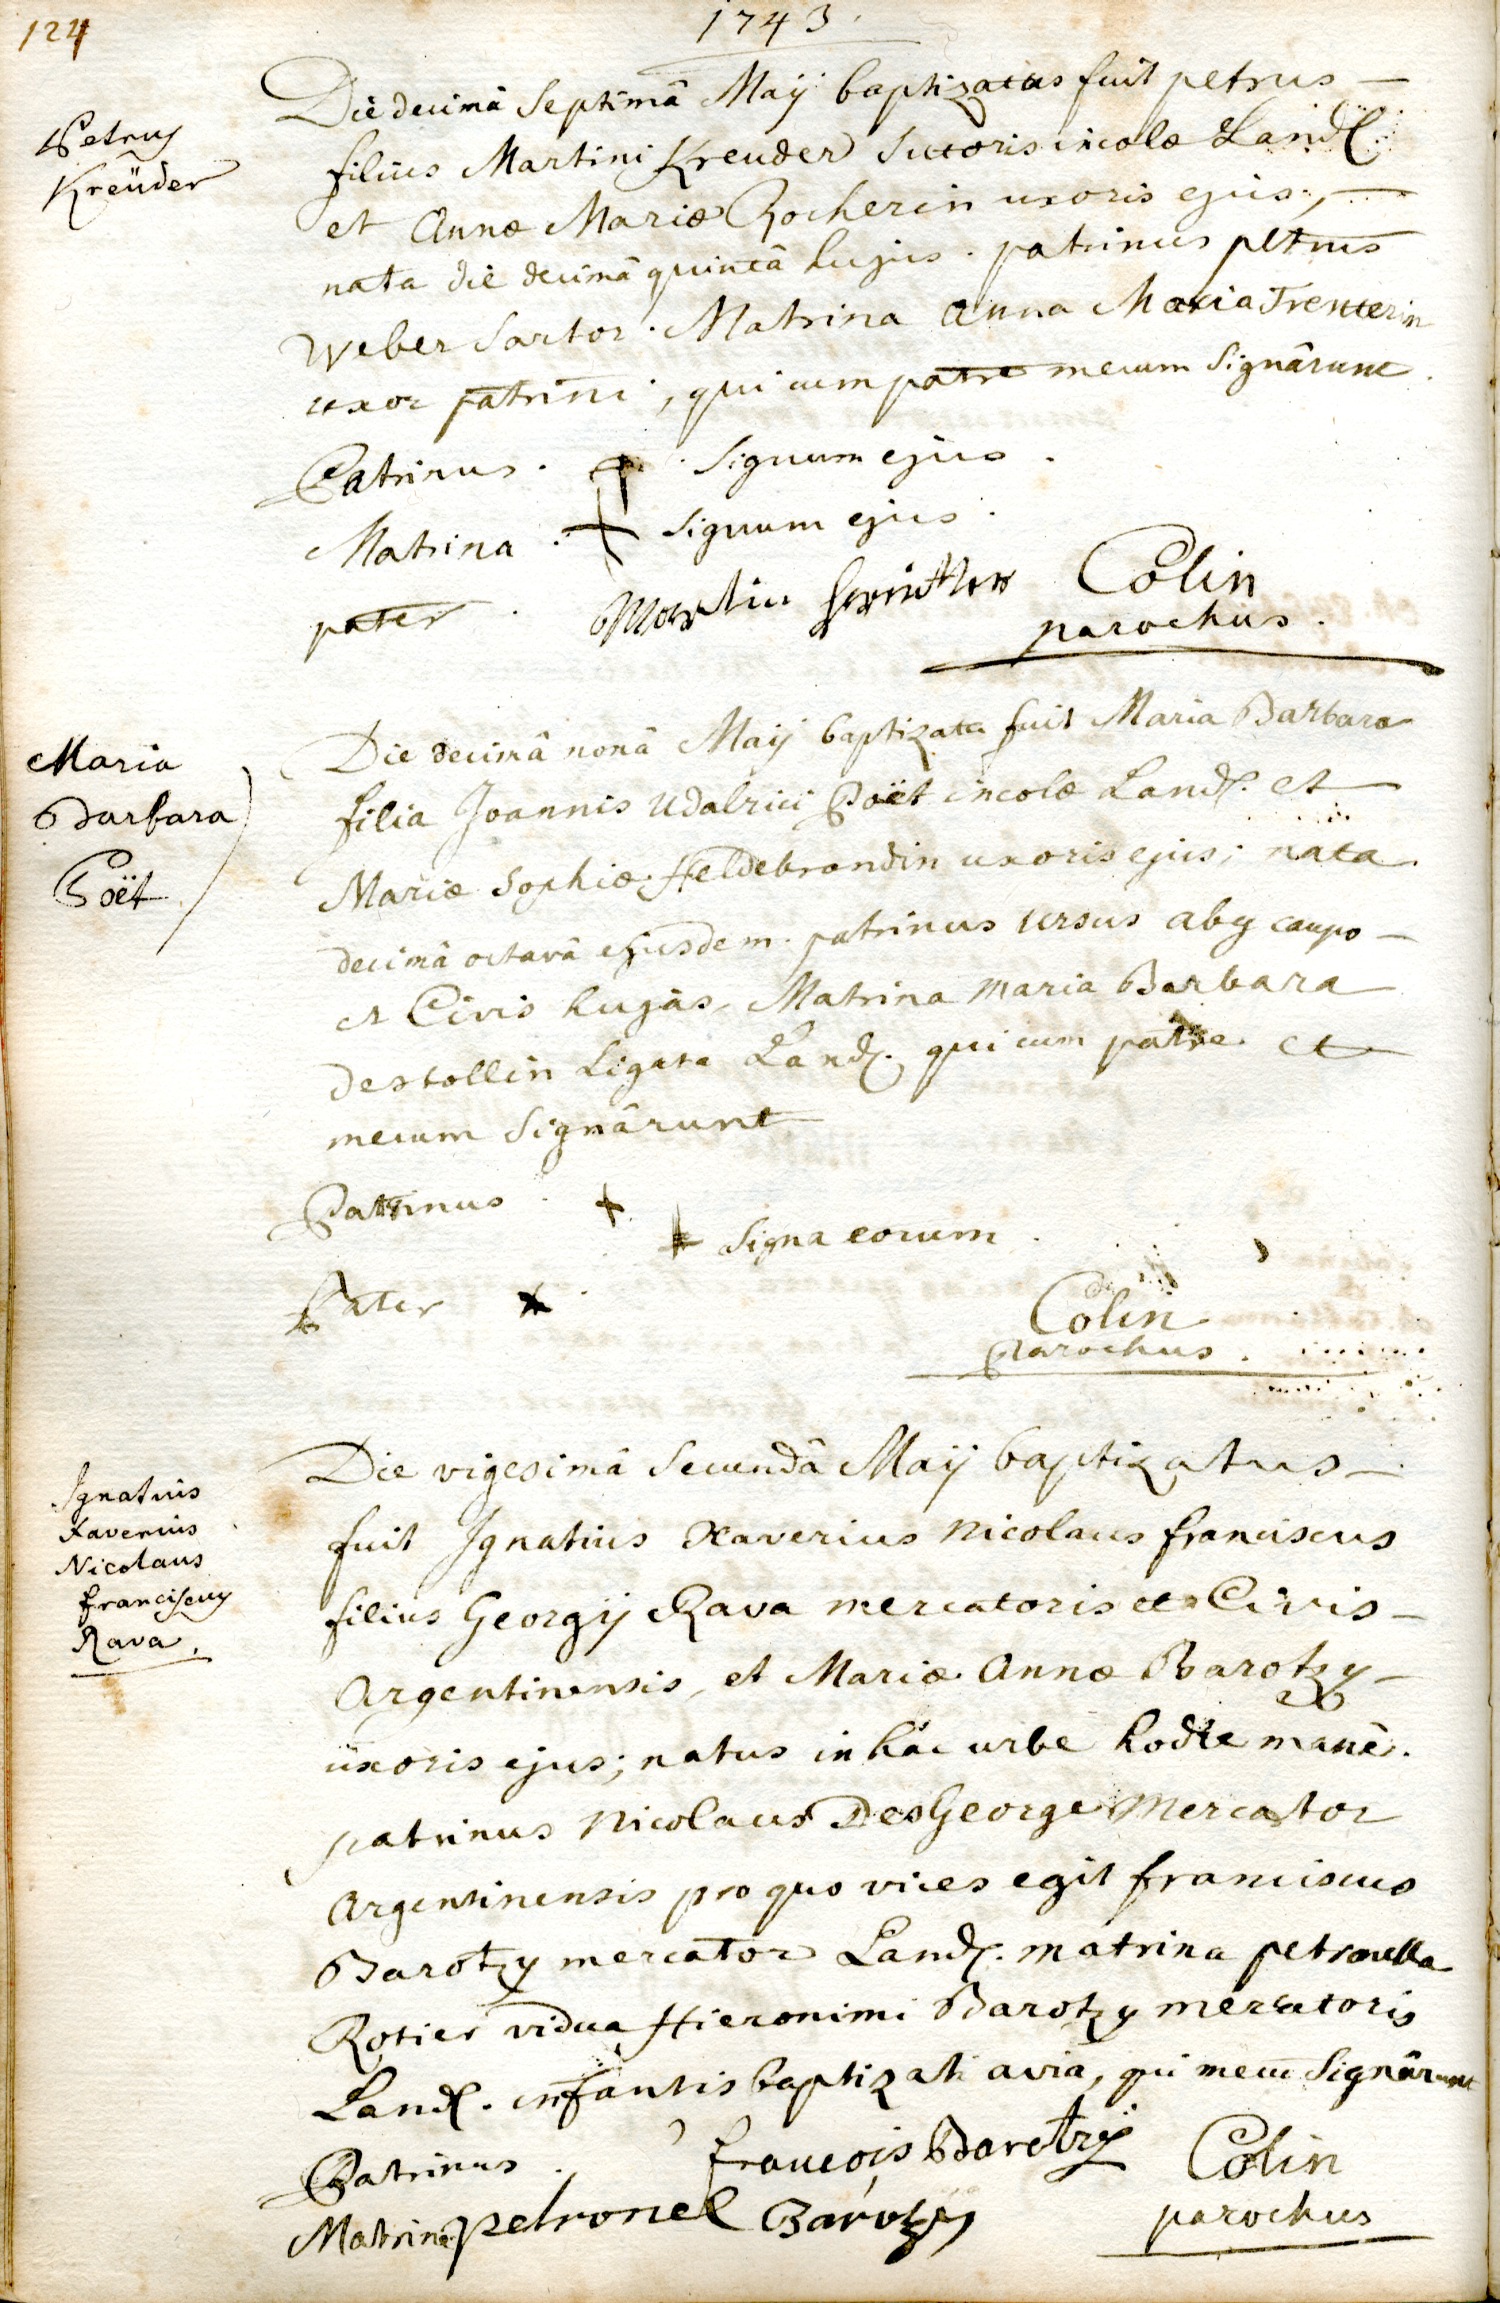 124
1743
Petrus
Kreüder
Die decimâ septimâ Maÿ baptizatus fuit petrus
filius Martini Kreuder sutoris incolæ Land.
et Annæ Mariæ Zocherin uxoris ejus,
nata die decimâ quintâ hujus. patrinus petrus
Weber sartor. Matrina Anna Maria
uxor patrini, qui cum patre mecum signârunt.
Patrinus. signum ejus.
Matrina. + signum ejus.
pater. Martin
Colin
parochus.
Maria
Barbara
Poët
Die decimâ nonâ Maÿ baptizata fuit Maria Barbara
filia Joannis Udalrici Poët incolæ Land. et
Mariæ Sophiæ Heldebrandin uxoris ejus; nata
decimâ octavâ ejusdem. patrinus Ursus aby caupo
et Civis hujas, Matrina Maria Barbara
destollin ligata Land. qui cum patre et
mecum signârunt
Patrinus. +
+ signa eorum.
Pater +
Colin
Parochus.
Ignatius
Xaverius
Nicolaus
franciscus
Rava.
Die vigesimâ secundâ Maÿ baptizatus
fuit Ignatius Xaverius Nicolaus franciscus
filius Georgÿ Rava mercatoris et Civis
Argentinensis, et Mariæ Annæ Barotzy
uxoris ejus; natus in hâc urbe hodie manè.
patrinus Nicolaus DesGeorge Mercator
Argentinensis pro quo vices egit franciscus
Barotzy mercator Land. matrina petronella
Rotier vidua Hieronimi Barotzy mercatoris
Land. infantis baptizati avia, qui mecū signârunt
Patrinus. francois Barotzÿ
Matrina petronel Barotzÿ
Colin
parochus